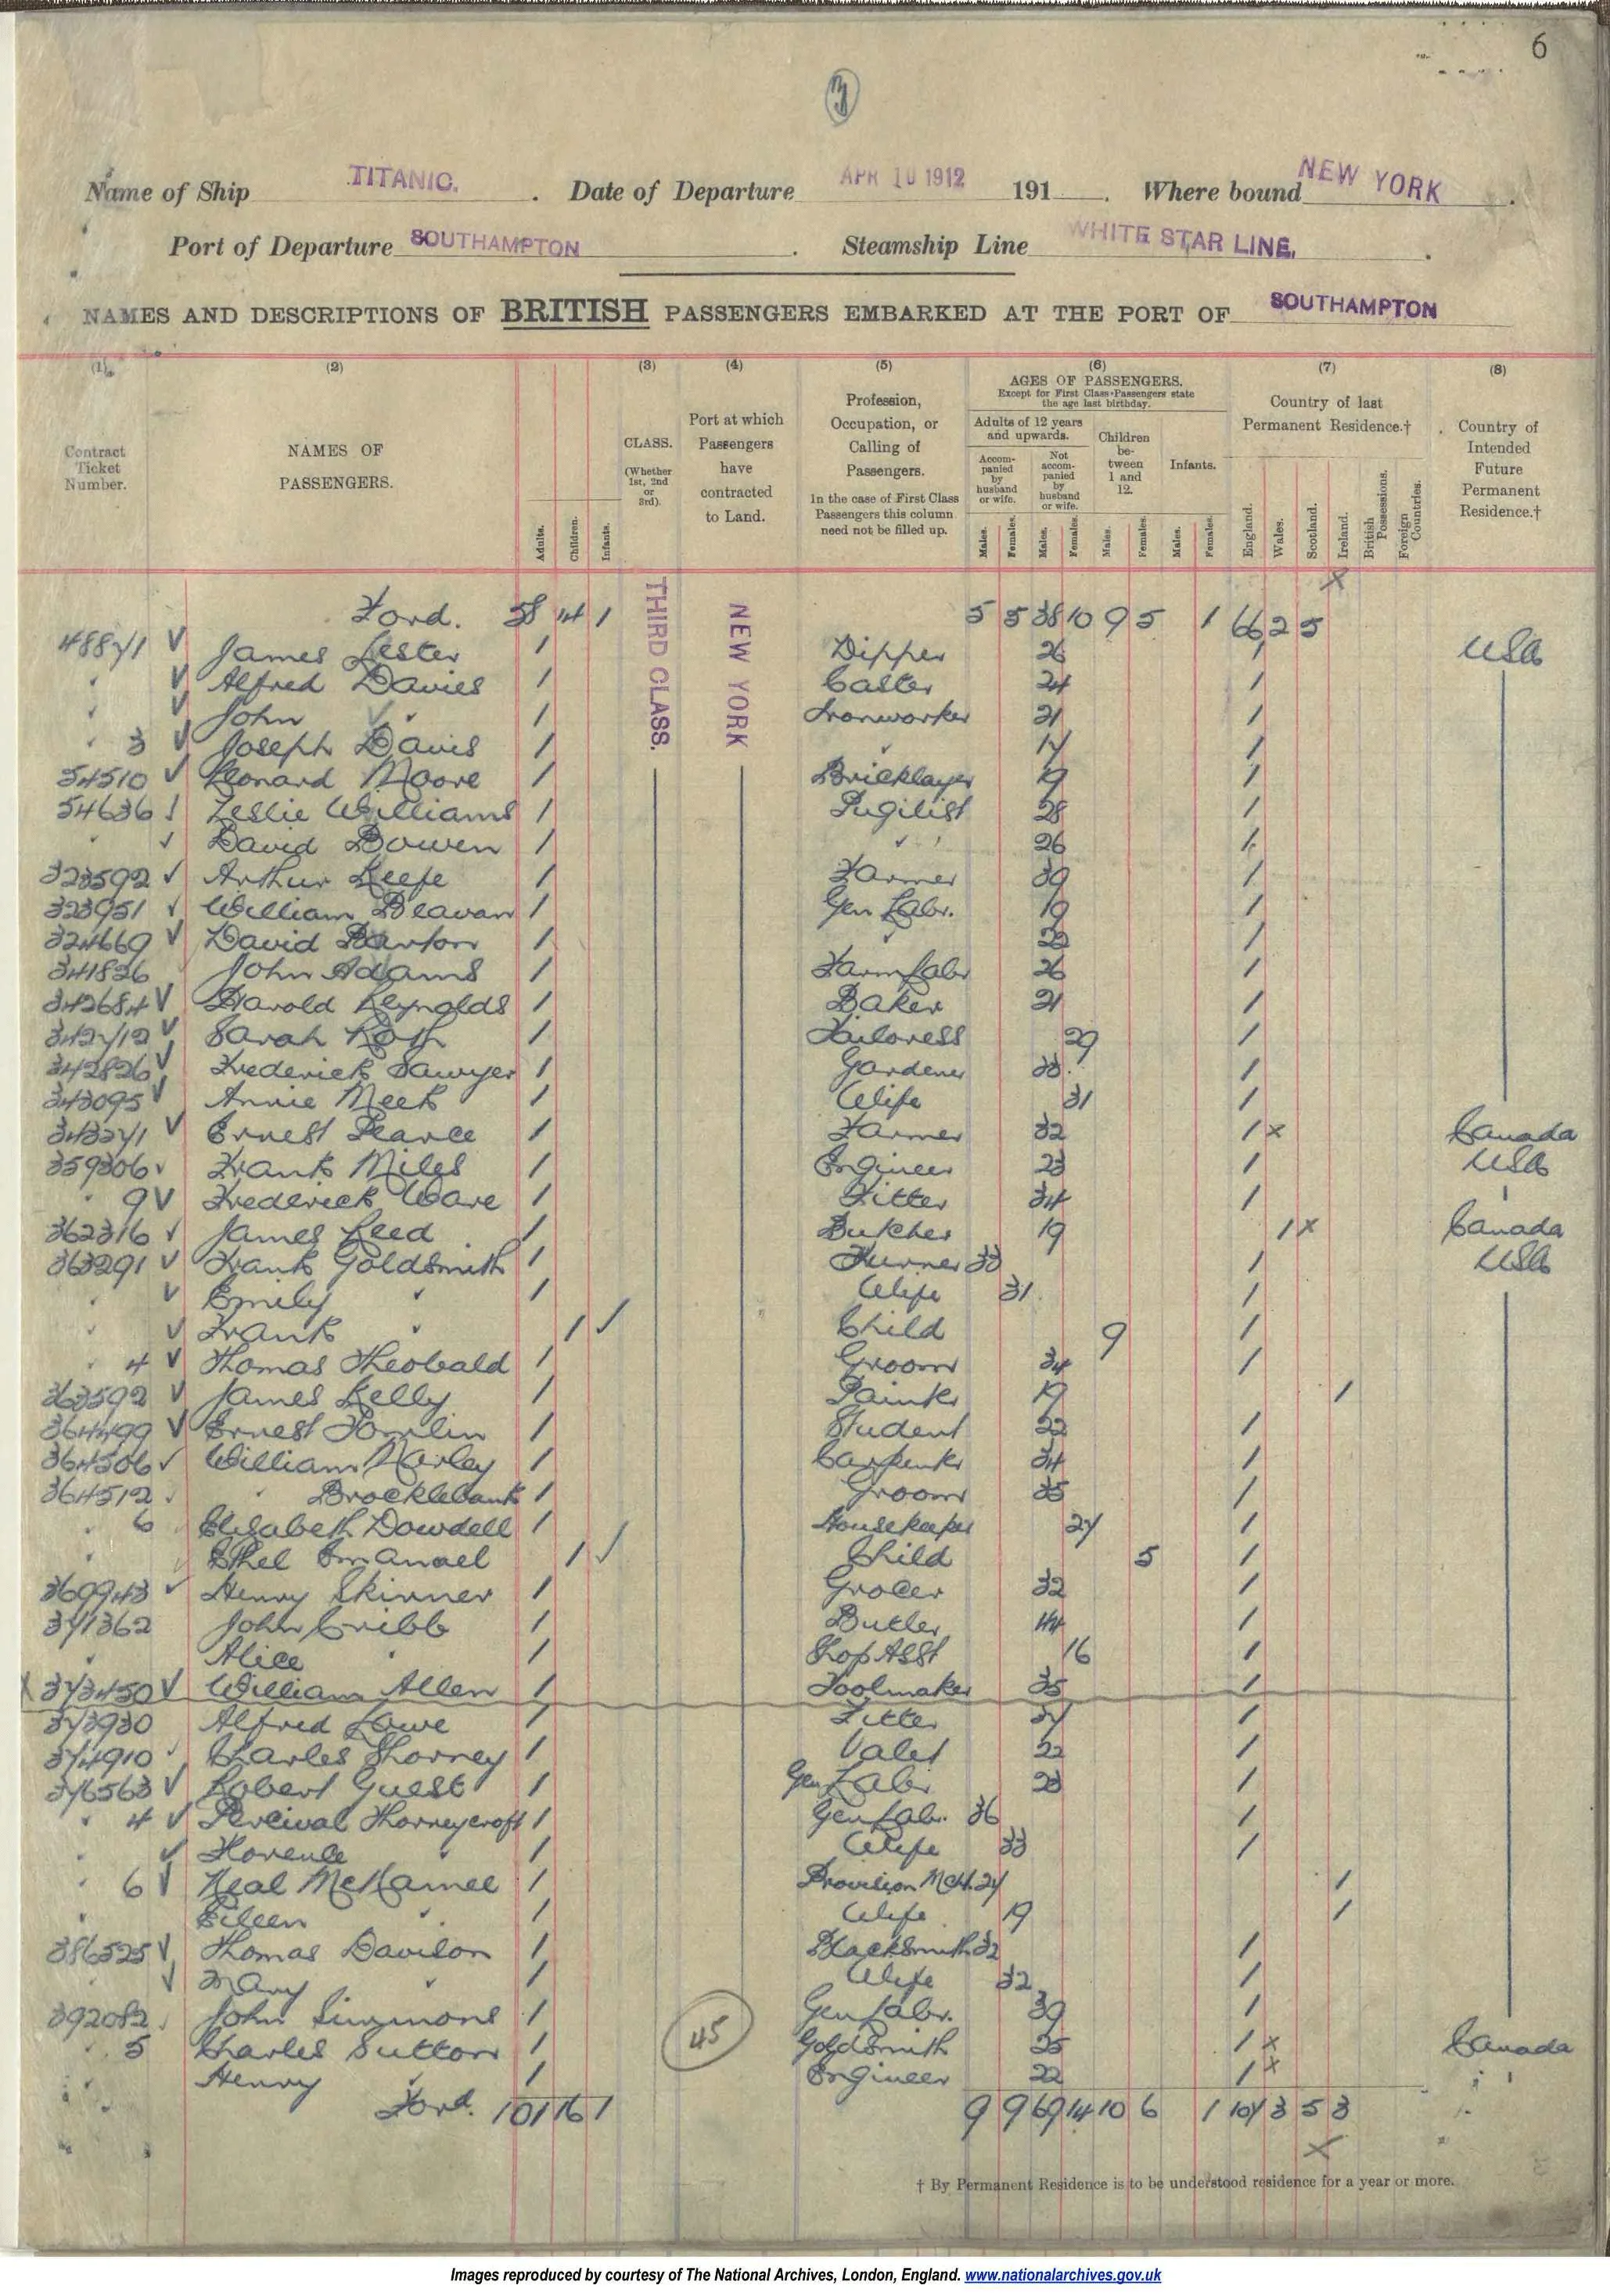 6
3
Name of Ship TITANIC. Date of Departure APR 10 1912 191 . Where bound NEW YORK .
Port of Departure SOUTHAMPTON . Steamship Line WHITE STAR LINE. .
NAMES AND DESCRIPTIONS OF BRITISH PASSENGERS EMBARKED AT THE PORT OF SOUTHAMPTON
(1) (2) (3) (4) (5) (6) (7) (8)
Contract Ticket Number.
NAMES OF PASSENGERS.
Adults. Children. Infants.
CLASS. (Whether 1st, 2nd or 3rd).
Port at which Passengers have contracted to Land.
Profession, Occupation, or Calling of Passengers.
In the case of First Class Passengers this column need not be filled up.
AGES OF PASSENGERS.
Except for First Class Passengers state the age last birthday.
Adults of 12 years and upwards.
Accompanied by husband or wife.
Not accompanied by husband or wife.
Children between 1 and 12.
Infants.
Males. Females. Males. Females. Males. Females. Males. Females.
Country of last Permanent Residence.†
England. Wales. Scotland. Ireland. British Possessions. Foreign Countries.
Country of Intended Future Permanent Residence.†
THIRD CLASS.
NEW YORK
x
Ford. 58 14 1 5 5 38 10 9 5 1 66 2 5
48871 √ James Lester 1 Dipper 26 1 USA
" √ Alfred Davies 1 Caster 24 1
" √ John " 1 Ironworker 21 1
" 3 √ Joseph Davis 1 " 17 1
54510 √ Leonard Moore 1 Bricklayer 19 1
54636 √ Leslie Williams 1 Pugilist 28 1
" √ David Bowen 1 " " 26 1
323592 √ Arthur Keefe 1 Farmer 39 1
323951 √ William Beavan 1 Gen Labr. 19 1
324669 √ David Barton 1 " 22 1
341826 John Adams 1 Farm Labr 26 1
342684 √ Harold Reynolds 1 Baker 21 1
342712 √ Sarah Roth 1 Tailoress 29 1
342826 √ Frederick Sawyer 1 Gardener 33 1
343095 √ Annie Meek 1 Wife 31 1
343271 √ Ernest Pearce 1 Farmer 32 1 x Canada
359306 √ Frank Miles 1 Engineer 23 1 USA
" 9 √ Frederick Ware 1 Fitter 34 1 "
362316 √ James Reed 1 Butcher 19 1 x Canada
363291 √ Frank Goldsmith 1 Turner 33 1 USA
" √ Emily " 1 Wife 31 1
" √ Frank " 1 √ Child 9 1
" 4 √ Thomas Theobald 1 Groom 34 1
363592 √ James Kelly 1 Painter 19 1
364499 √ Ernest Tomlin 1 Student 22 1
364506 √ William Morley 1 Carpenter 34 1
364512 √ " Brocklebank 1 Groom 35 1
" 6 Elisabeth Dowdell 1 Housekeeper 27 1
" Ethel Emanuel 1 √ Child 5 1
369943 √ Henry Skinner 1 Grocer 32 1
371362 John Cribb 1 Butler 44 1
" Alice " 1 Shop Asst 16 1
x 373450 √ William Allen 1 Toolmaker 35 1
373930 Alfred Lowe 1 Fitter 27 1
374910 √ Charles Thorney 1 Valet 22 1
376563 √ Robert Guest 1 Gen Labr 23 1
" 4 √ Percival Thorneycroft 1 Gen Labr. 36 1
" √ Florence " 1 Wife 33 1
" 6 √ Neal McNamee 1 Provision Mch. 27 1
" Eileen " 1 Wife 19 1
386525 √ Thomas Davison 1 Blacksmith 32 1
" √ Mary " 1 Wife 32 1
392082 √ John Simmons 1 Gen Labr. 39 1
" 5 Charles Sutton 1 Goldsmith 25 1 x Canada
" Henry " 1 Engineer 22 1 x " "
45
Ford. 101 16 1 9 9 69 14 10 6 1 107 3 5 3
x
† By Permanent Residence is to be understood residence for a year or more.
Images reproduced by courtesy of The National Archives, London, England. www.nationalarchives.gov.uk